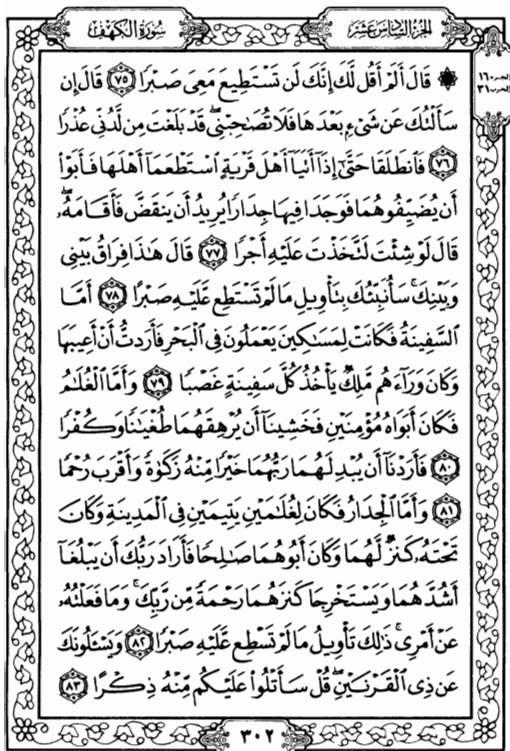 الجزء السادس عشر
سورة الكهف
۞ قَالَ أَلَمْ أَقُل لَّكَ إِنَّكَ لَن تَسْتَطِيعَ مَعِىَ صَبْرًا ٧٥ قَالَ إِن
سَأَلْتُكَ عَن شَىْءٍۭ بَعْدَهَا فَلَا تُصَـٰحِبْنِى ۖ قَدْ بَلَغْتَ مِن لَّدُنِّى عُذْرًا
٧٦ فَٱنطَلَقَا حَتَّىٰٓ إِذَآ أَتَيَآ أَهْلَ قَرْيَةٍ ٱسْتَطْعَمَآ أَهْلَهَا فَأَبَوْا۟
أَن يُضَيِّفُوهُمَا فَوَجَدَا فِيهَا جِدَارًا يُرِيدُ أَن يَنقَضَّ فَأَقَامَهُۥ ۖ
قَالَ لَوْ شِئْتَ لَتَّخَذْتَ عَلَيْهِ أَجْرًا ٧٧ قَالَ هَـٰذَا فِرَاقُ بَيْنِى
وَبَيْنِكَ ۚ سَأُنَبِّئُكَ بِتَأْوِيلِ مَا لَمْ تَسْتَطِع عَّلَيْهِ صَبْرًا ٧٨ أَمَّا
ٱلسَّفِينَةُ فَكَانَتْ لِمَسَـٰكِينَ يَعْمَلُونَ فِى ٱلْبَحْرِ فَأَرَدتُّ أَنْ أَعِيبَهَا
وَكَانَ وَرَآءَهُم مَّلِكٌ يَأْخُذُ كُلَّ سَفِينَةٍ غَصْبًا ٧٩ وَأَمَّا ٱلْغُلَـٰمُ
فَكَانَ أَبَوَاهُ مُؤْمِنَيْنِ فَخَشِينَآ أَن يُرْهِقَهُمَا طُغْيَـٰنًا وَكُفْرًا
٨٠ فَأَرَدْنَآ أَن يُبْدِلَهُمَا رَبُّهُمَا خَيْرًا مِّنْهُ زَكَوٰةً وَأَقْرَبَ رُحْمًا
٨١ وَأَمَّا ٱلْجِدَارُ فَكَانَ لِغُلَـٰمَيْنِ يَتِيمَيْنِ فِى ٱلْمَدِينَةِ وَكَانَ
تَحْتَهُۥ كَنزٌ لَّهُمَا وَكَانَ أَبُوهُمَا صَـٰلِحًا فَأَرَادَ رَبُّكَ أَن يَبْلُغَآ
أَشُدَّهُمَا وَيَسْتَخْرِجَا كَنزَهُمَا رَحْمَةً مِّن رَّبِّكَ ۚ وَمَا فَعَلْتُهُۥ
عَنْ أَمْرِى ۚ ذَٰلِكَ تَأْوِيلُ مَا لَمْ تَسْطِع عَّلَيْهِ صَبْرًا ٨٢ وَيَسْـَٔلُونَكَ
عَن ذِى ٱلْقَرْنَيْنِ ۖ قُلْ سَأَتْلُوا۟ عَلَيْكُم مِّنْهُ ذِكْرًا ٨٣
٣٠٢